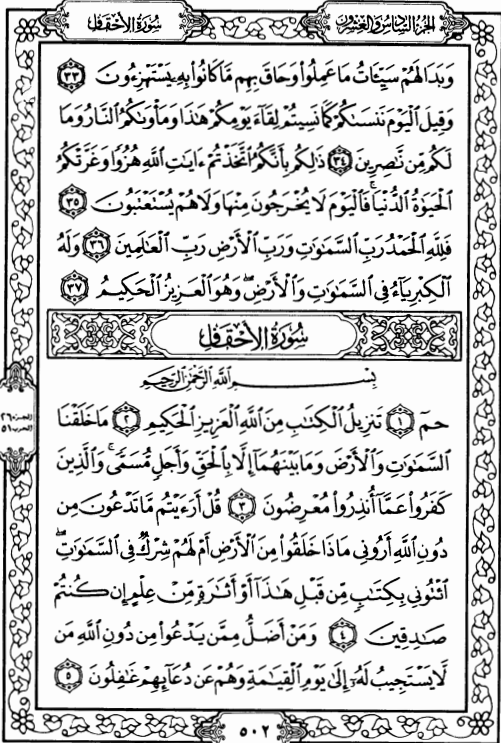 سُورَةُ الأَحْقَافِ
الجُزْءُ السَّادِسُ وَالعِشْرُونَ
وَبَدَا لَهُمْ سَيِّـَٔاتُ مَا عَمِلُوا۟ وَحَاقَ بِهِم مَّا كَانُوا۟ بِهِۦ يَسْتَهْزِءُونَ ٣٣
وَقِيلَ ٱلْيَوْمَ نَنسَىٰكُمْ كَمَا نَسِيتُمْ لِقَآءَ يَوْمِكُمْ هَـٰذَا وَمَأْوَىٰكُمُ ٱلنَّارُ وَمَا
لَكُم مِّن نَّـٰصِرِينَ ٣٤ ذَٰلِكُم بِأَنَّكُمُ ٱتَّخَذْتُمْ ءَايَـٰتِ ٱللَّهِ هُزُوًا وَغَرَّتْكُمُ
ٱلْحَيَوٰةُ ٱلدُّنْيَا ۚ فَٱلْيَوْمَ لَا يُخْرَجُونَ مِنْهَا وَلَا هُمْ يُسْتَعْتَبُونَ ٣٥
فَلِلَّهِ ٱلْحَمْدُ رَبِّ ٱلسَّمَـٰوَٰتِ وَرَبِّ ٱلْأَرْضِ رَبِّ ٱلْعَـٰلَمِينَ ٣٦ وَلَهُ
ٱلْكِبْرِيَآءُ فِى ٱلسَّمَـٰوَٰتِ وَٱلْأَرْضِ ۖ وَهُوَ ٱلْعَزِيزُ ٱلْحَكِيمُ ٣٧
سُورَةُ الأَحْقَافِ
بِسْمِ ٱللَّهِ ٱلرَّحْمَـٰنِ ٱلرَّحِيمِ
حمٓ ١ تَنزِيلُ ٱلْكِتَـٰبِ مِنَ ٱللَّهِ ٱلْعَزِيزِ ٱلْحَكِيمِ ٢ مَا خَلَقْنَا
ٱلسَّمَـٰوَٰتِ وَٱلْأَرْضَ وَمَا بَيْنَهُمَآ إِلَّا بِٱلْحَقِّ وَأَجَلٍ مُّسَمًّى ۚ وَٱلَّذِينَ
كَفَرُوا۟ عَمَّآ أُنذِرُوا۟ مُعْرِضُونَ ٣ قُلْ أَرَءَيْتُم مَّا تَدْعُونَ مِن
دُونِ ٱللَّهِ أَرُونِى مَاذَا خَلَقُوا۟ مِنَ ٱلْأَرْضِ أَمْ لَهُمْ شِرْكٌ فِى ٱلسَّمَـٰوَٰتِ ۖ
ٱئْتُونِى بِكِتَـٰبٍ مِّن قَبْلِ هَـٰذَآ أَوْ أَثَـٰرَةٍ مِّنْ عِلْمٍ إِن كُنتُمْ
صَـٰدِقِينَ ٤ وَمَنْ أَضَلُّ مِمَّن يَدْعُوا۟ مِن دُونِ ٱللَّهِ مَن
لَّا يَسْتَجِيبُ لَهُۥٓ إِلَىٰ يَوْمِ ٱلْقِيَـٰمَةِ وَهُمْ عَن دُعَآئِهِمْ غَـٰفِلُونَ ٥
الجزء ٢٦
الحزب ٥١
٥٠٢